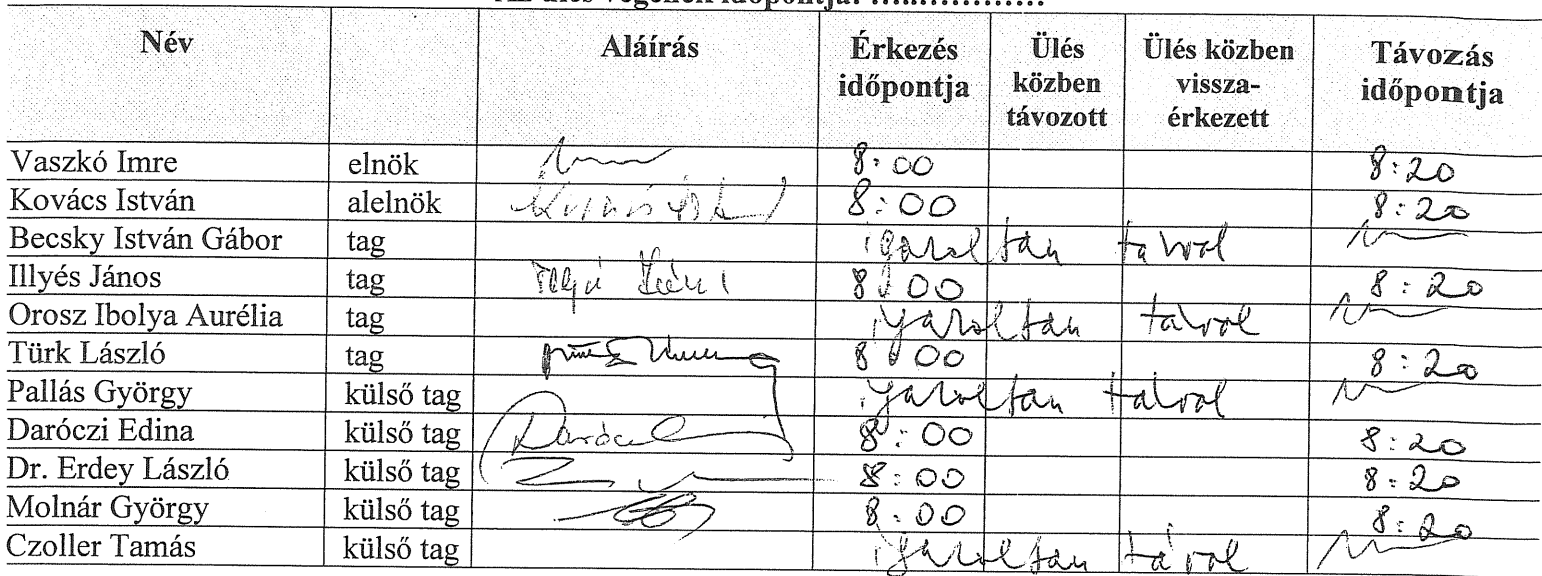 Az ülés végének időpontja: ..................
Név Aláírás Érkezés időpontja Ülés közben távozott Ülés közben vissza-érkezett Távozás időpontja
Vaszkó Imre elnök 8:00 8:20
Kovács István alelnök Kovács István 8:00 8:20
Becsky István Gábor tag igazoltan távol
Illyés János tag 8:00 8:20
Orosz Ibolya Aurélia tag igazoltan távol
Türk László tag 8:00 8:20
Pallás György külső tag igazoltan távol
Daróczi Edina külső tag Daróczi 8:00 8:20
Dr. Erdey László külső tag 8:00 8:20
Molnár György külső tag 8:00 8:20
Czoller Tamás külső tag igazoltan távol